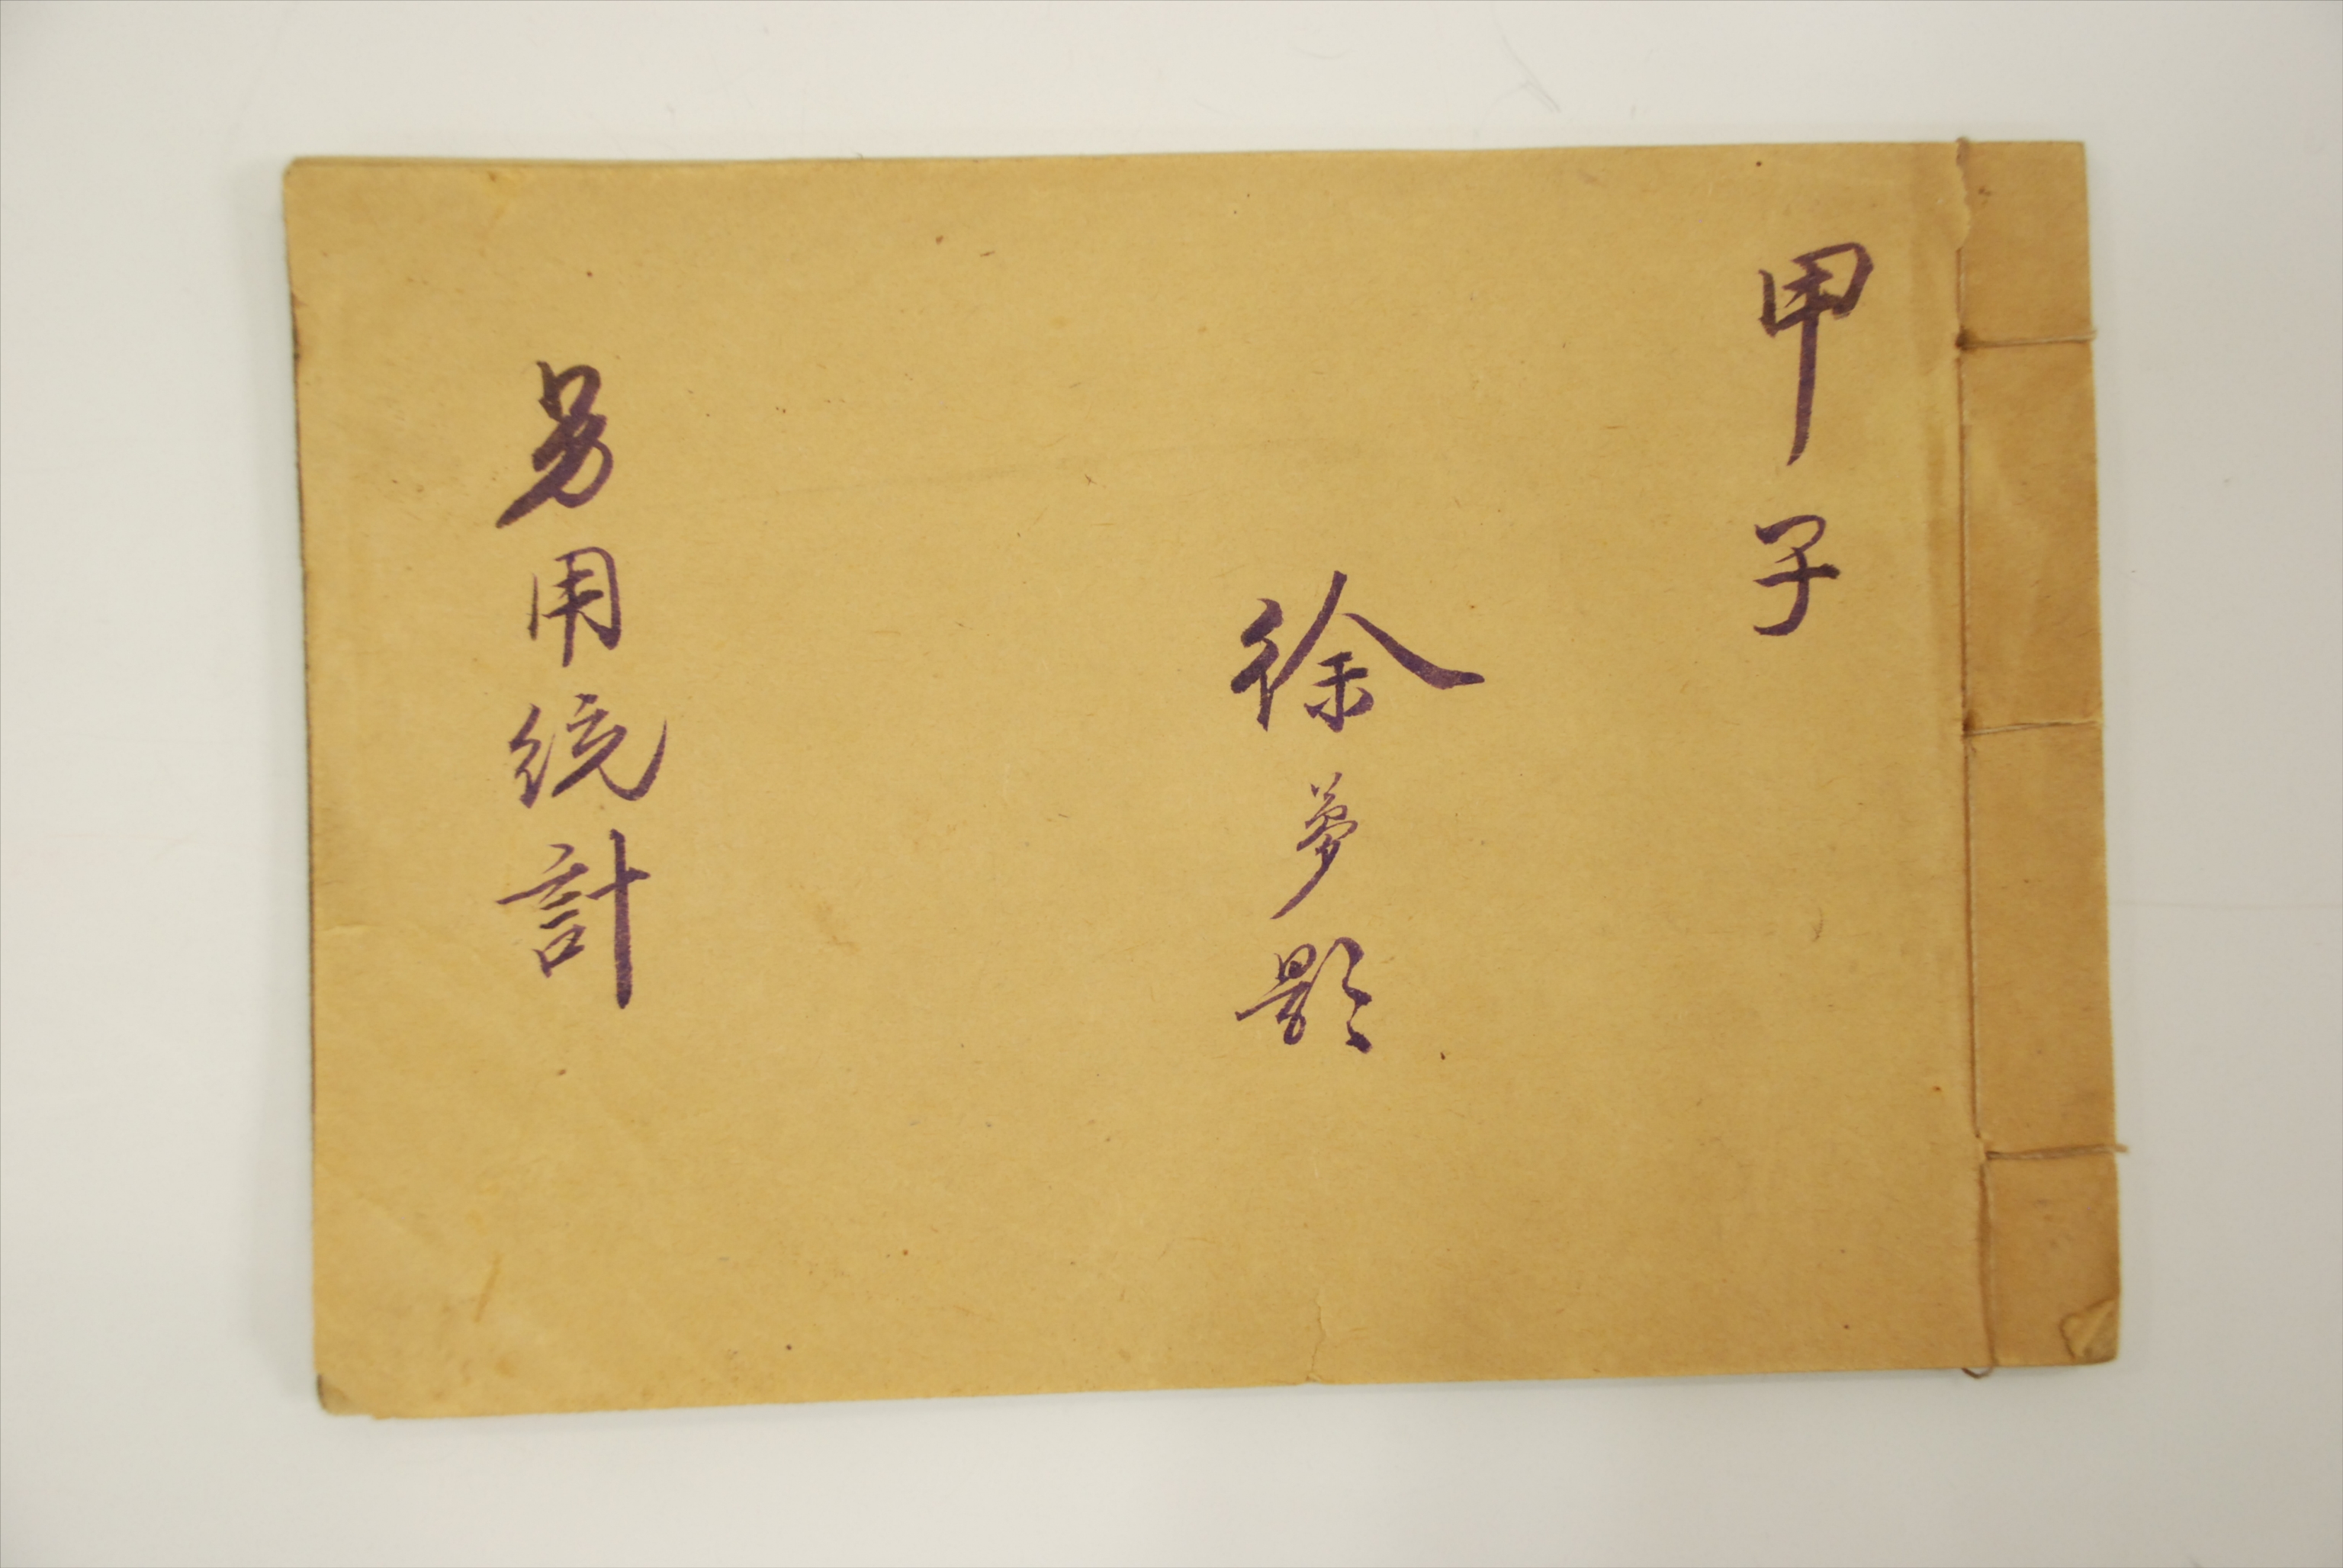 甲子
徐夢影
另用統計